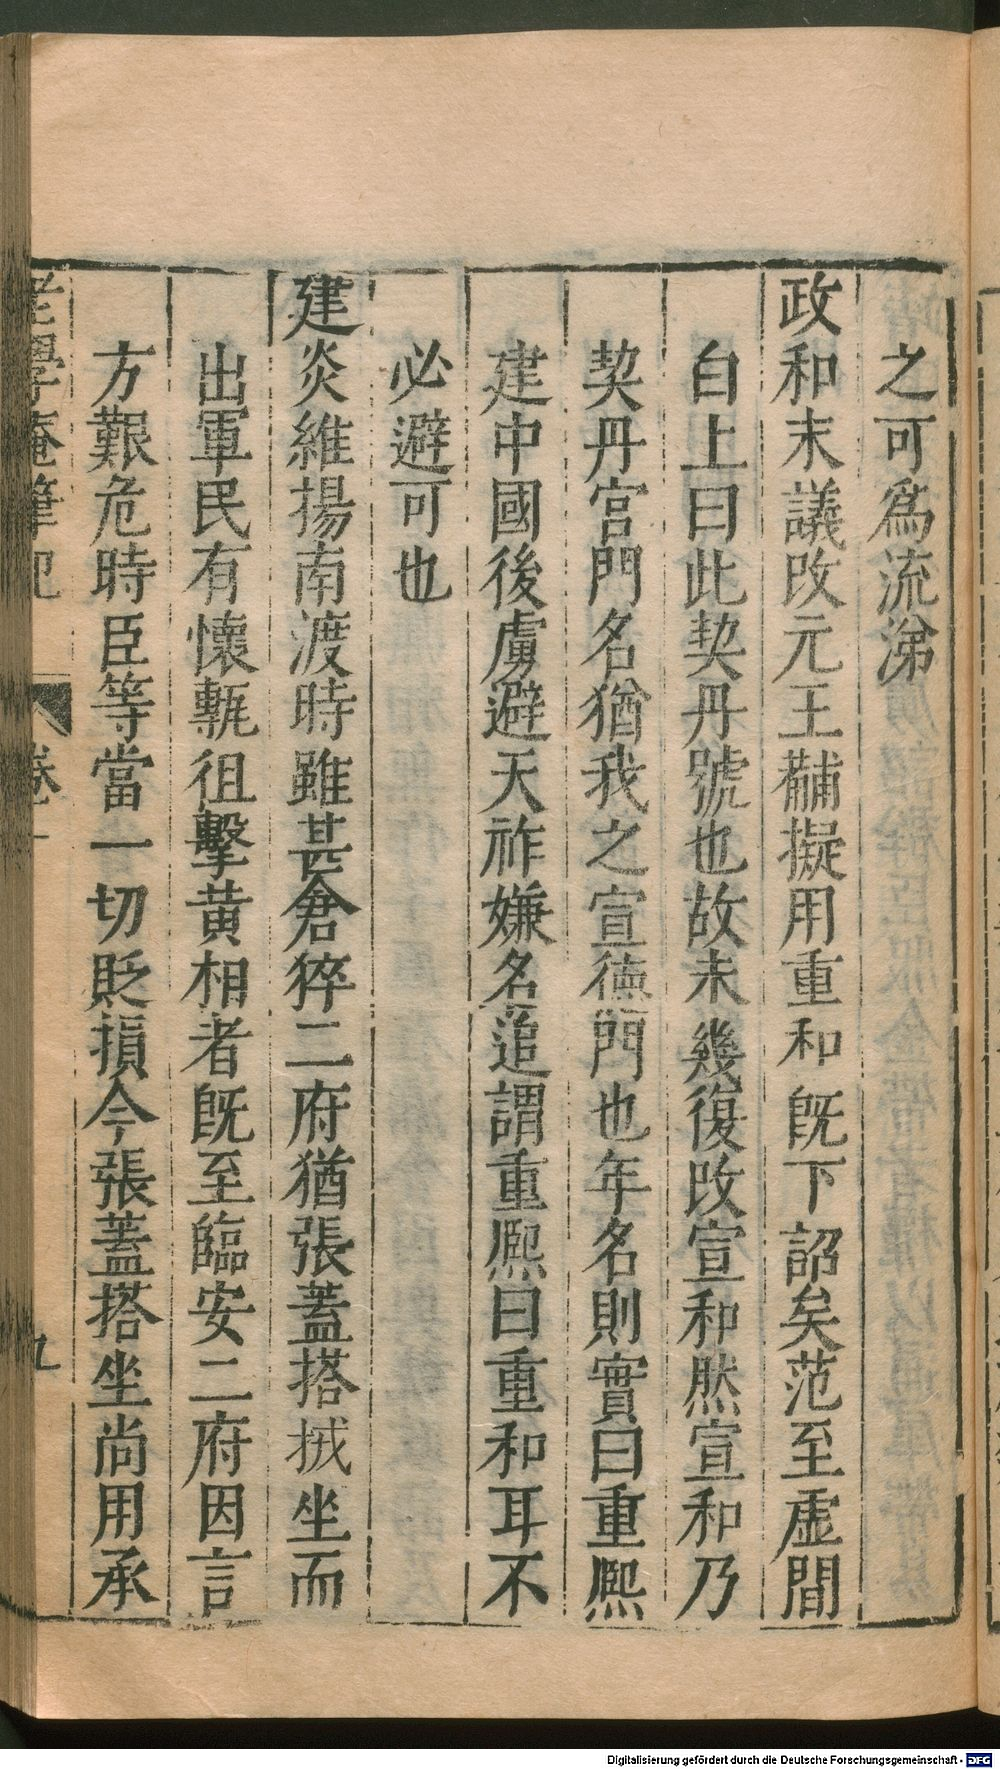 之可爲流涕
政和末議改元王黼擬用重和旣下詔矣范至虛間
白上曰此契丹號也故未幾復改宣和然宣和乃
契丹宮門名猶我之宣德門也年名則實曰重熙
建中國後虜避天祚嫌名追謂重熙曰重和耳不
必避可也
建炎維揚南渡時雖甚倉猝二府猶張蓋搭狨坐而
出軍民有懷甎狙擊黃相者旣至臨安二府因言
方艱危時臣等當一切貶損今張蓋搭坐尚用承
老學庵筆記 卷一 九
Digitalisierung gefördert durch die Deutsche Forschungsgemeinschaft - DFG